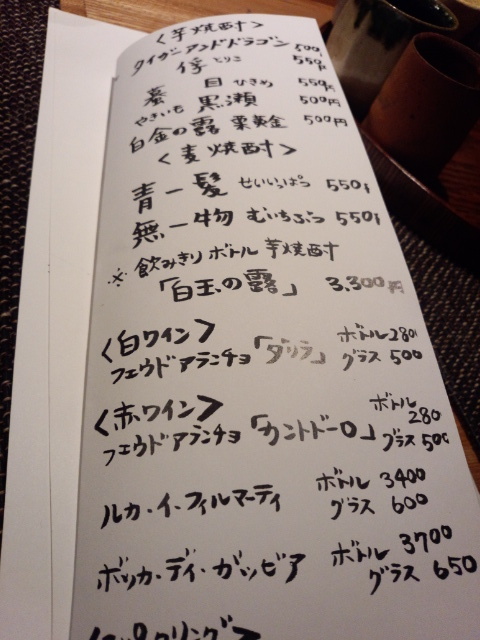 <芋焼酎>
タイガーアンドドラゴン 500
侍 とりこ 550円
蟇目 ひきめ 550円
やきいも 黒瀬 500円
白金の露 栗黄金 500円
<麦焼酎>
青一髪 せいいっぱつ 550円
無一物 むいちぶつ 550円
※飲みきりボトル 芋焼酎
「白玉の露」 3,300円
<白ワイン> ボトル 280
フェウドアランチョ「ダリラ」 グラス 500
<赤ワイン> ボトル 280
フェウドアランチョ「カントドーロ」 グラス 500
ルカ・イ・フィルマーティ ボトル 3400
グラス 600
ボッカ・ディ・ガッビア ボトル 3700
グラス 650